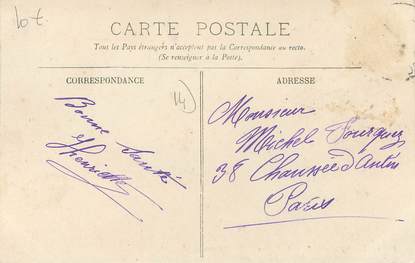 10 €
CARTE POSTALE
Tous les Pays étrangers n'acceptent pas la Correspondance au recto.
(Se renseigner à la Poste).
CORRESPONDANCE
Bonne Santé
Henriette
14
ADRESSE
Monsieur
Michel
38 Chaussée d'Antin
Paris